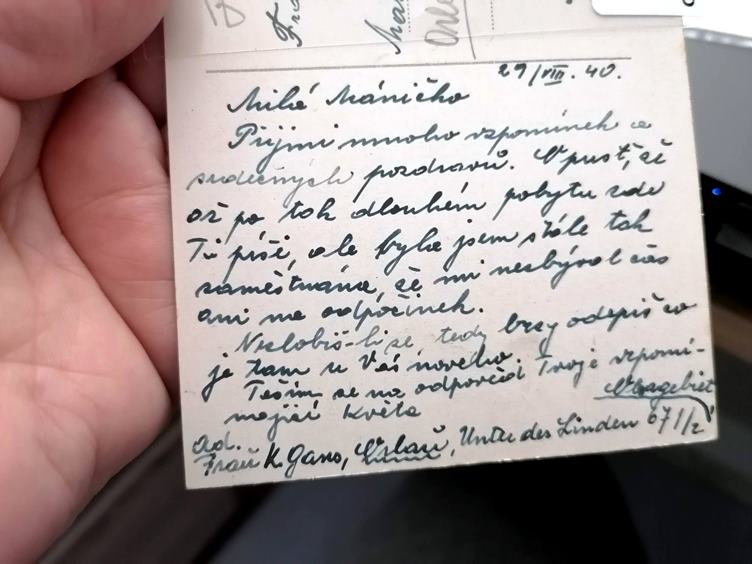 29/VIII. 40.
Milá Máničko
Přijmi mnoho vzpomínek a
srdečných pozdravů. Vpusť, že
až po tak dlouhém pobytu zde
Ti píši, ale byla jsem stále tak
zaměstnána, že mi nezbýval čas
ani na odpočinek.
Nezlobíš-li se, tedy brzy odepiš co
je tam u Vás nového.
Těším se na odpověď Tvoje vzpomí-
nající Květa
ad.
Frau K. Gans, Unter des Linden 671/2